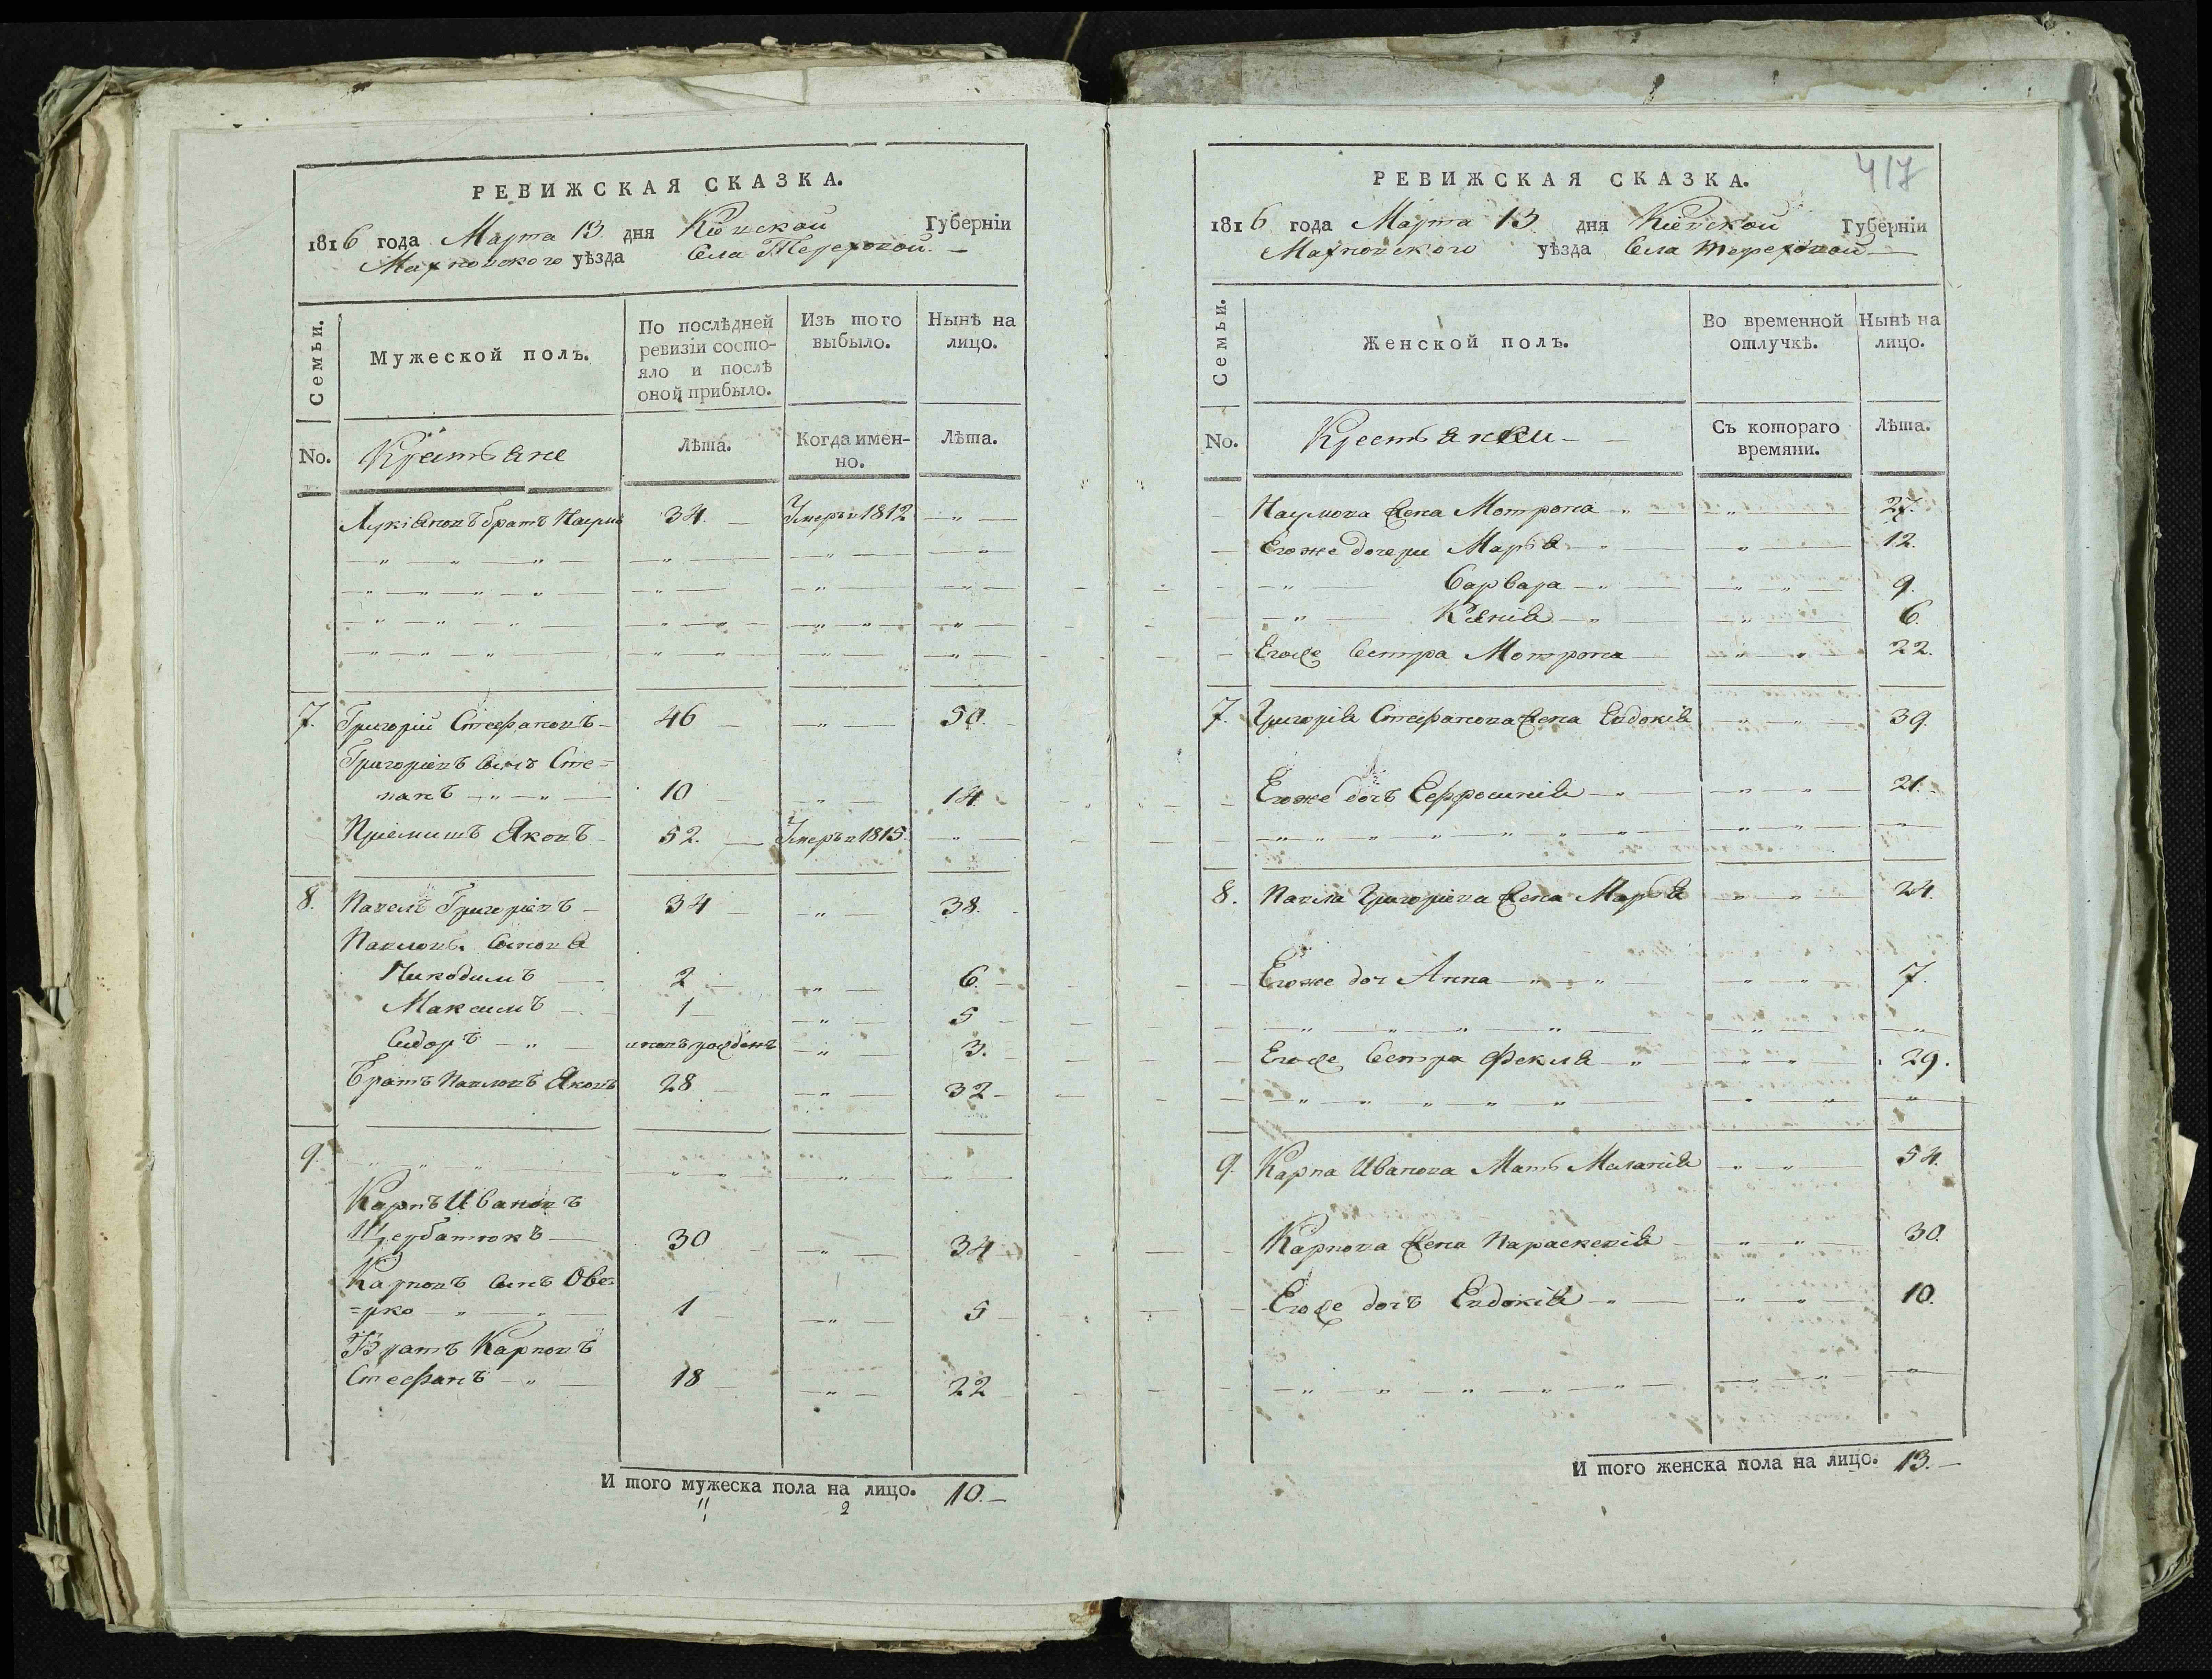 РЕВИЖСКАЯ СКАЗКА.
1816 года Марта 13 дня Кіевской Губерніи
Махновского уѣзда Села Тереховой
Семьи.
Мужеской полъ.
По послѣдней ревизіи состо-
яло и послѣ
оной прибыло.
Изъ того выбыло.
Нынѣ на лицо.
No.
Крестьяне
Лѣта.
Когда имен-
но.
Лѣта.
Лукіяновъ братъ Наумъ 34. Умеръ в 1812
7. Григорій Стефановъ 46 50.
Григоріевъ Сынъ Сте=
панъ 10 14
Пріемишъ Яковъ 52. Умеръ в 1815
8. Павелъ Григоріевъ 34 38.
Павловы Сыновя
Никодимъ 2 6
Максимъ 1 5
Сидоръ новорожденъ 3.
Братъ Павловъ Яковъ 28 32
9.
Карпъ Ивановъ
Щербатюкъ 30 34
Карповъ Сынъ Ове=
=рко 1 5
Братъ Карповъ
Стефанъ 18 22
И того мужеска пола на лицо. 10.
2
417
РЕВИЖСКАЯ СКАЗКА.
1816 года Марта 13 дня Кіевской Губерніи
Махновского уѣзда Села Тереховой
Семьи.
Женской полъ.
Во временной отлучкѣ.
Нынѣ на лицо.
No.
Крестьянки
Съ котораго времяни.
Лѣта.
Наумова жена Мотрона 27.
Егоже дочери Марья 12.
Варвара 9.
Ксенія 6.
Егоже Сестра Мотрона 22.
7. Григорія Стефанова жена Евдокія 39.
Егоже дочъ Ефросинія 21.
8. Павла Григоріева жена Марья 24.
Егоже доч Анна 7.
Егоже Сестра Фекля 29.
9. Карпа Иванова Мать Меланія 54.
Карпова жена Параскевія 30.
Егоже дочъ Евдокія 10.
И того женска пола на лицо. 13.